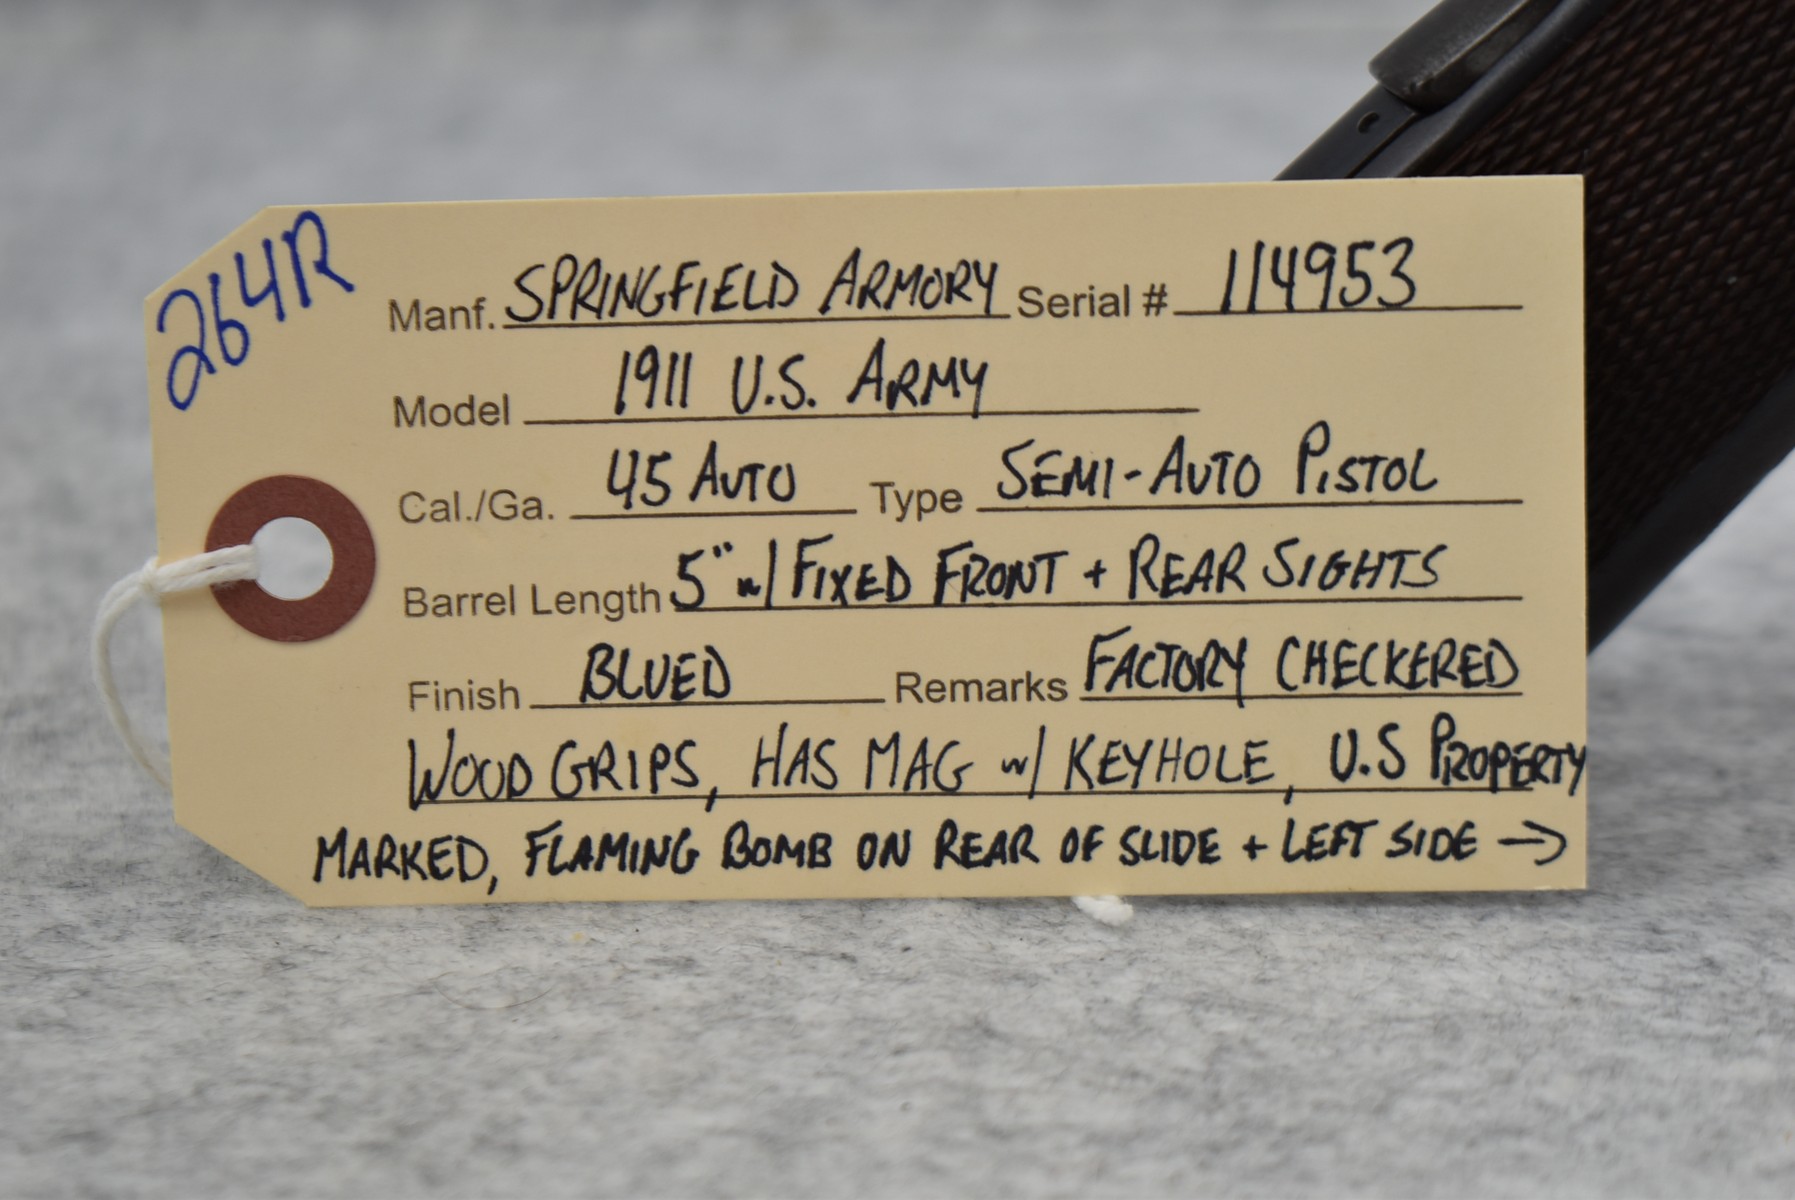 264R
Manf. SPRINGFIELD ARMORY Serial # 114953
Model 1911 U.S. ARMY
Cal./Ga. 45 AUTO Type SEMI-AUTO PISTOL
Barrel Length 5" w/ FIXED FRONT + REAR SIGHTS
Finish BLUED Remarks FACTORY CHECKERED
WOOD GRIPS, HAS MAG w/ KEYHOLE, U.S PROPERTY
MARKED, FLAMING BOMB ON REAR OF SLIDE + LEFT SIDE →